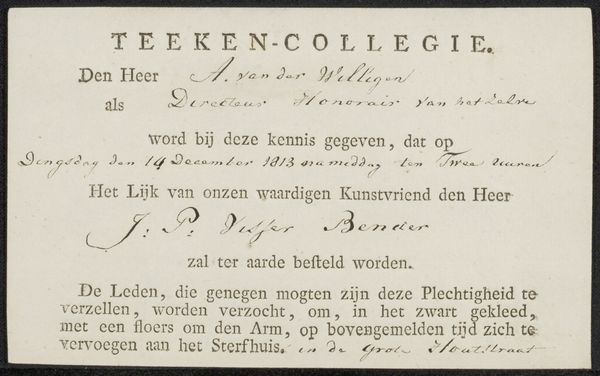 TEEKEN-COLLEGIE.
Den Heer A. van der Willigen
als Directeur Honorair van het zelve
word bij deze kennis gegeven, dat op
Dingsdag den 14 December 1813 namiddag ten Twee uuren
Het Lijk van onzen waardigen Kunstvriend den Heer
J: P: Visser Bender
zal ter aarde besteld worden.
De Leden, die genegen mogten zijn deze Plechtigheid te
verzellen, worden verzocht, om, in het zwart gekleed,
met een floers om den Arm, op bovengemelden tijd zich te
vervoegen aan het Sterfhuis. in de Grote Houtstraat